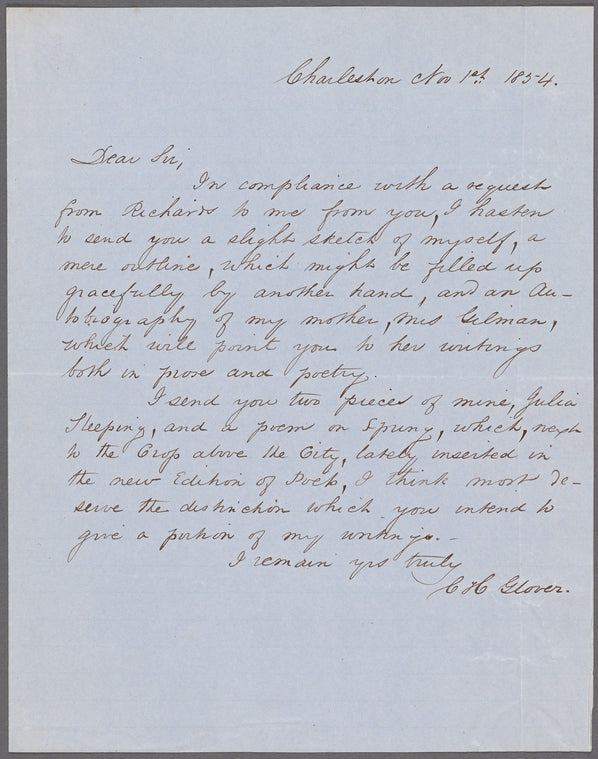 Charleston Nov 1st 1854.
Dear Sir,
In compliance with a request
from Richards to me from you, I hasten
to send you a slight sketch of myself, a
mere outline, which might be filled up
gracefully by another hand, and an Au-
tobiography of my mother, Mrs Gilman,
which will point you to her writings
both in prose and poetry.
I send you two pieces of mine, Julia
Sleeping, and a poem on Spring, which, next
to the Cross above the City, lately inserted in
the new Edition of Poets, I think most de-
serve the distinction which you intend to
give a portion of my writings.—
I remain yrs truly
C H Glover.